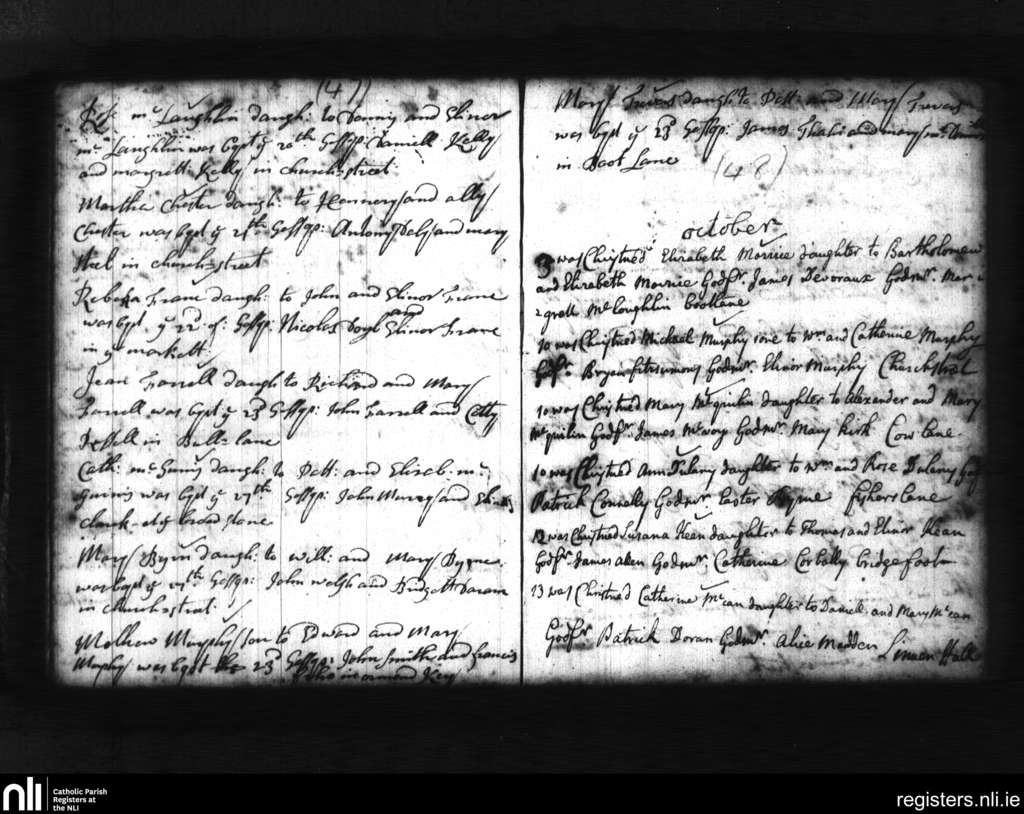 (47)
Rose mc Laughlin daugh: to Danniy and Elinor
mc Laughlin was bapt ye 20th Gossps: Daniell Kelly
and margrett Kelly in church-street
Martha Chester daugh: to Hennery and ally
Chester was bapt ye 21th Gossps: Antony Daly and mary
Steel in church-street
Rebecka Frane daugh: to John and Elinor Frane
was bapt ye 22d of: Gossp: Nicolas Doyl and Elinor Frane
in ye markett
Jean Farrell daugh to Richard and Mary
Farrell was bapt ye 23d Gossps: John Farrell and Catty
in Bull-lane
Cath: mc daugh: to Patt: and Elizab: mc
was bapt ye 27th Gossps: John Murrey and
clark at ye broad stone
Mary Byrn daugh: to will: and Mary Byrne
was bapt ye Gossps: John Welsh and Bridgett
in church-street
Mathew Murphy son to Edward and Mary
Murphy was bapt the 23d Gossps: John Smith and Francis
in ormond Key
Mary Trevers daught to Patt: and Mary Trevers
was bapt ye 23d Gossps: James and mary mc
in Boot Lane
(48)
october
3 was Christned Elizabeth Morrice daughter to Bartholomew
and Elizabeth Morrice Godfr. James Devoraux Godmr. Mar
grett Mcloughlin bootlane
10 was Christned Michael Murphy sone to Wm and Catherine Murphy
Godfr Bryan fitzsimons Godmr. Elinor Murphy Churchstreet
10 was Christned Mary Mcquilin daughter to Alexander and Mary
Mcquilin Godfr. James Mcevoy Godmr. Mary Kirk Cow lane
10 was Christned Ann Dulany daughter to Wm and Rose Dulany Godf
Patrick Connolly Godmr Easter Byrne fishers lane
12 was Christned Susana Kean daughter to Thomas and Elinor Kean
Godfr. James allen Godmr. Catherine Corbally bridgefoot
13 was Christned Catherine Mccan daughter to Daniell and Mary Mccan
Godfr. Patrick Doran Godmr. Alice Madden Linnen Hall
nli
Catholic Parish
Registers at
the NLI
registers.nli.ie